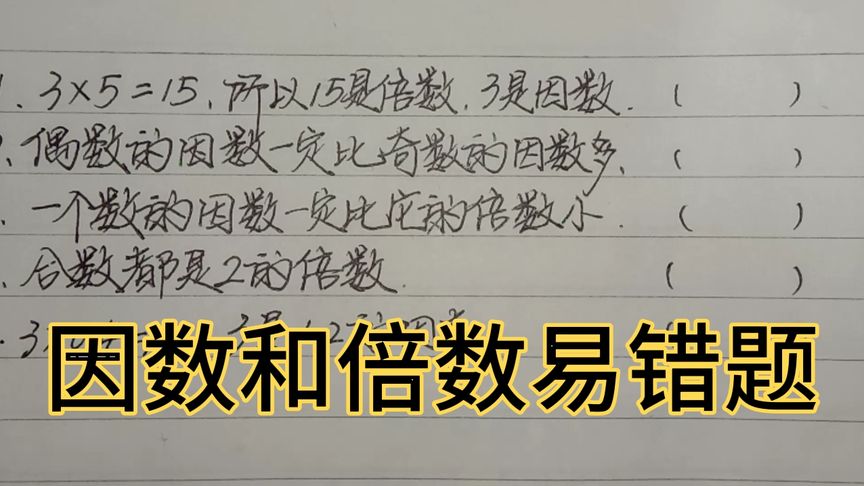 1. 3×5=15，所以15是倍数，3是因数．（ ）
偶数的因数一定比奇数的因数多、（ ）
一个数的因数一定比它的倍数小．（ ）
合数都是2的倍数．（ ）
因数和倍数易错题